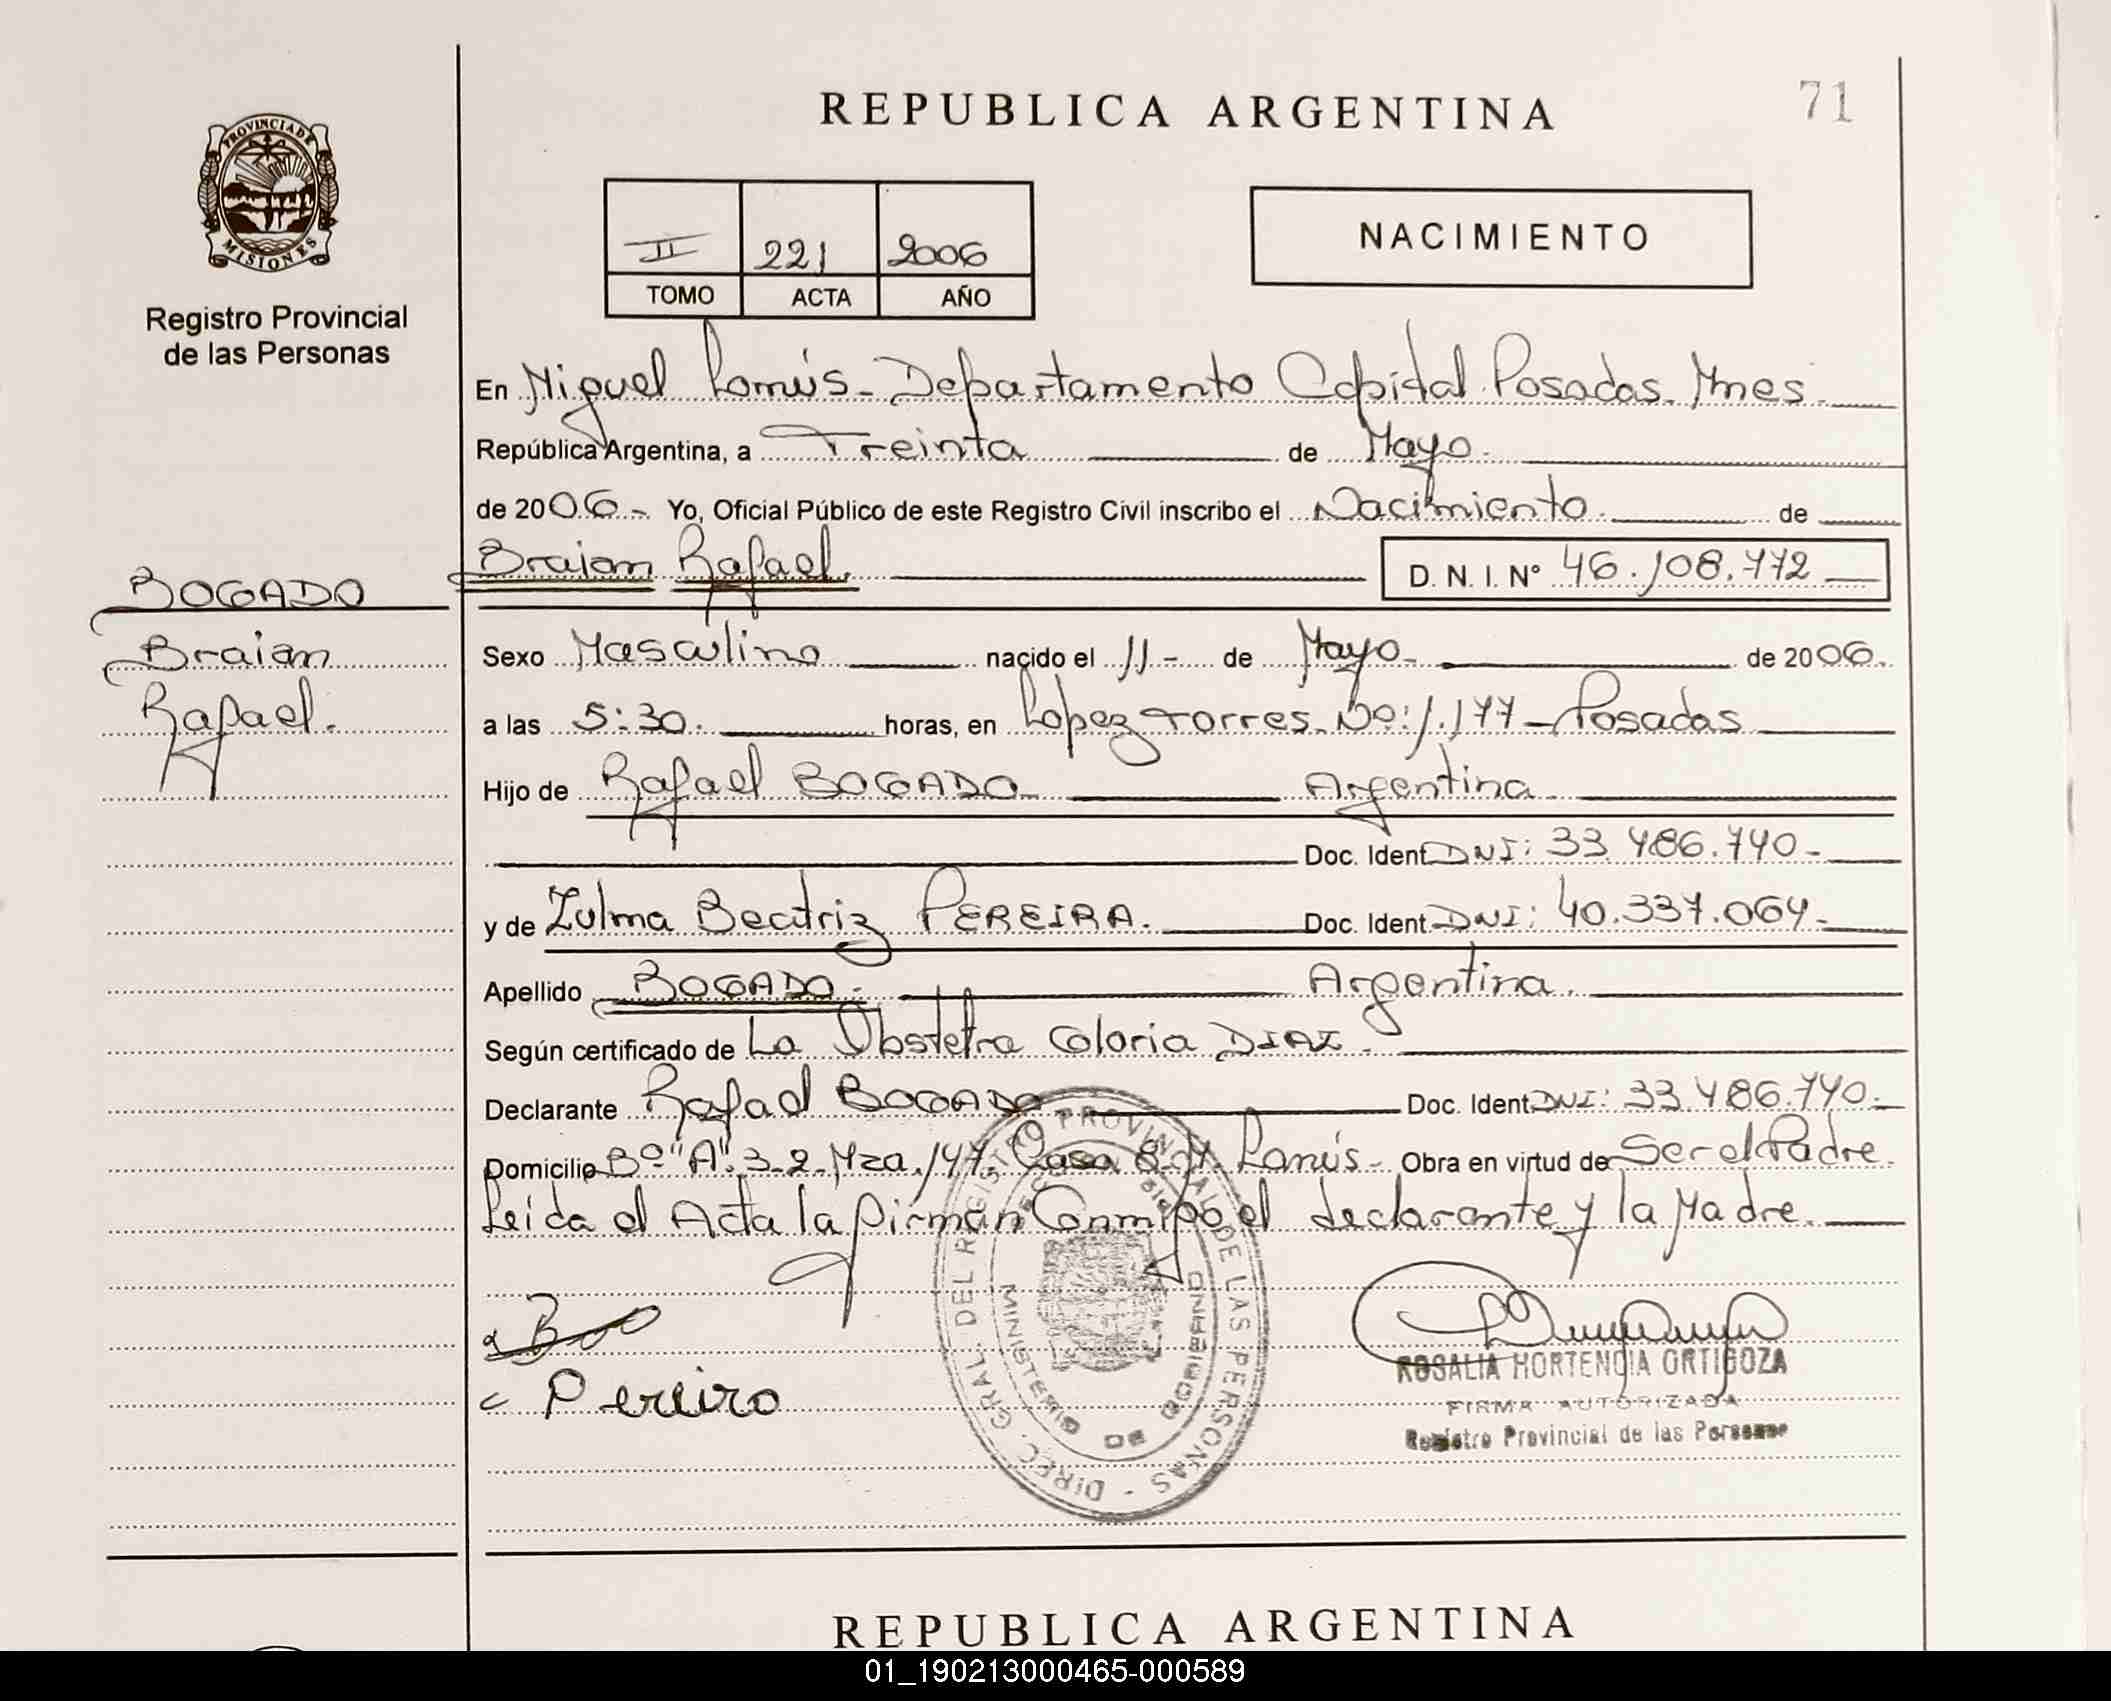 REPUBLICA ARGENTINA
71
PROVINCIA DE MISIONES
Registro Provincial
de las Personas
II 221 2006
TOMO ACTA AÑO
NACIMIENTO
En Miguel Lanús - Departamento Capital Posadas. Mnes.
República Argentina, a Treinta de Mayo.
de 2006.- Yo, Oficial Público de este Registro Civil inscribo el Nacimiento. de
Braian Rafael. D. N. I. Nº 46.108.772
BOGADO
Braian
Rafael.
Sexo Masculino nacido el 11- de Mayo- de 2006.
a las 5:30. horas, en Lopez Torres. Nº: 1.177 - Posadas
Hijo de Rafael BOGADO Argentina.
Doc. Ident DNI: 33.486.740-
y de Zulma Beatriz PEREIRA. Doc. Ident DNI: 40.337.064-
Apellido BOGADO.- Argentina.
Según certificado de La Obstetra Gloria DIAZ.
Declarante Rafael BOGADO Doc. Ident DNI: 33.486.740.-
Domicilio Bº "A" 3-2 Mza. 147. Casa 8- M. Lanús- Obra en virtud de Ser el Padre
Leida el Acta la firman Conmigo el declarante y la Madre.
DIREC. GRAL. DEL REGISTRO PROVINCIAL DE LAS PERSONAS -
MINISTERIO DE GOBIERNO
Pereiro
ROSALIA HORTENCIA ORTIGOZA
FIRMA AUTORIZADA
Registro Provincial de las Personas
REPUBLICA ARGENTINA
01_190213000465-000589